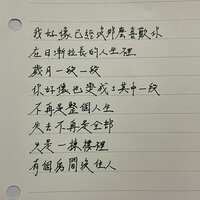 我好像已經沒那麼喜歡你
在日漸拉長的人生裡
歲月一段一段
你好像也變成了其中一段
不再是整個人生
失去不再是全部
只是一棟樓裡
有個房間沒住人